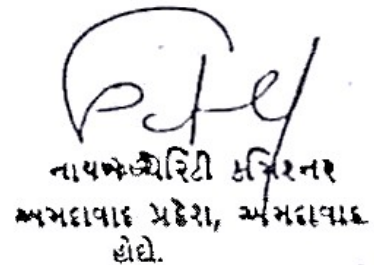 નાયબ ચેરિટી કમિશનર
અમદાવાદ પ્રદેશ, અમદાવાદ
હોદ્દો.